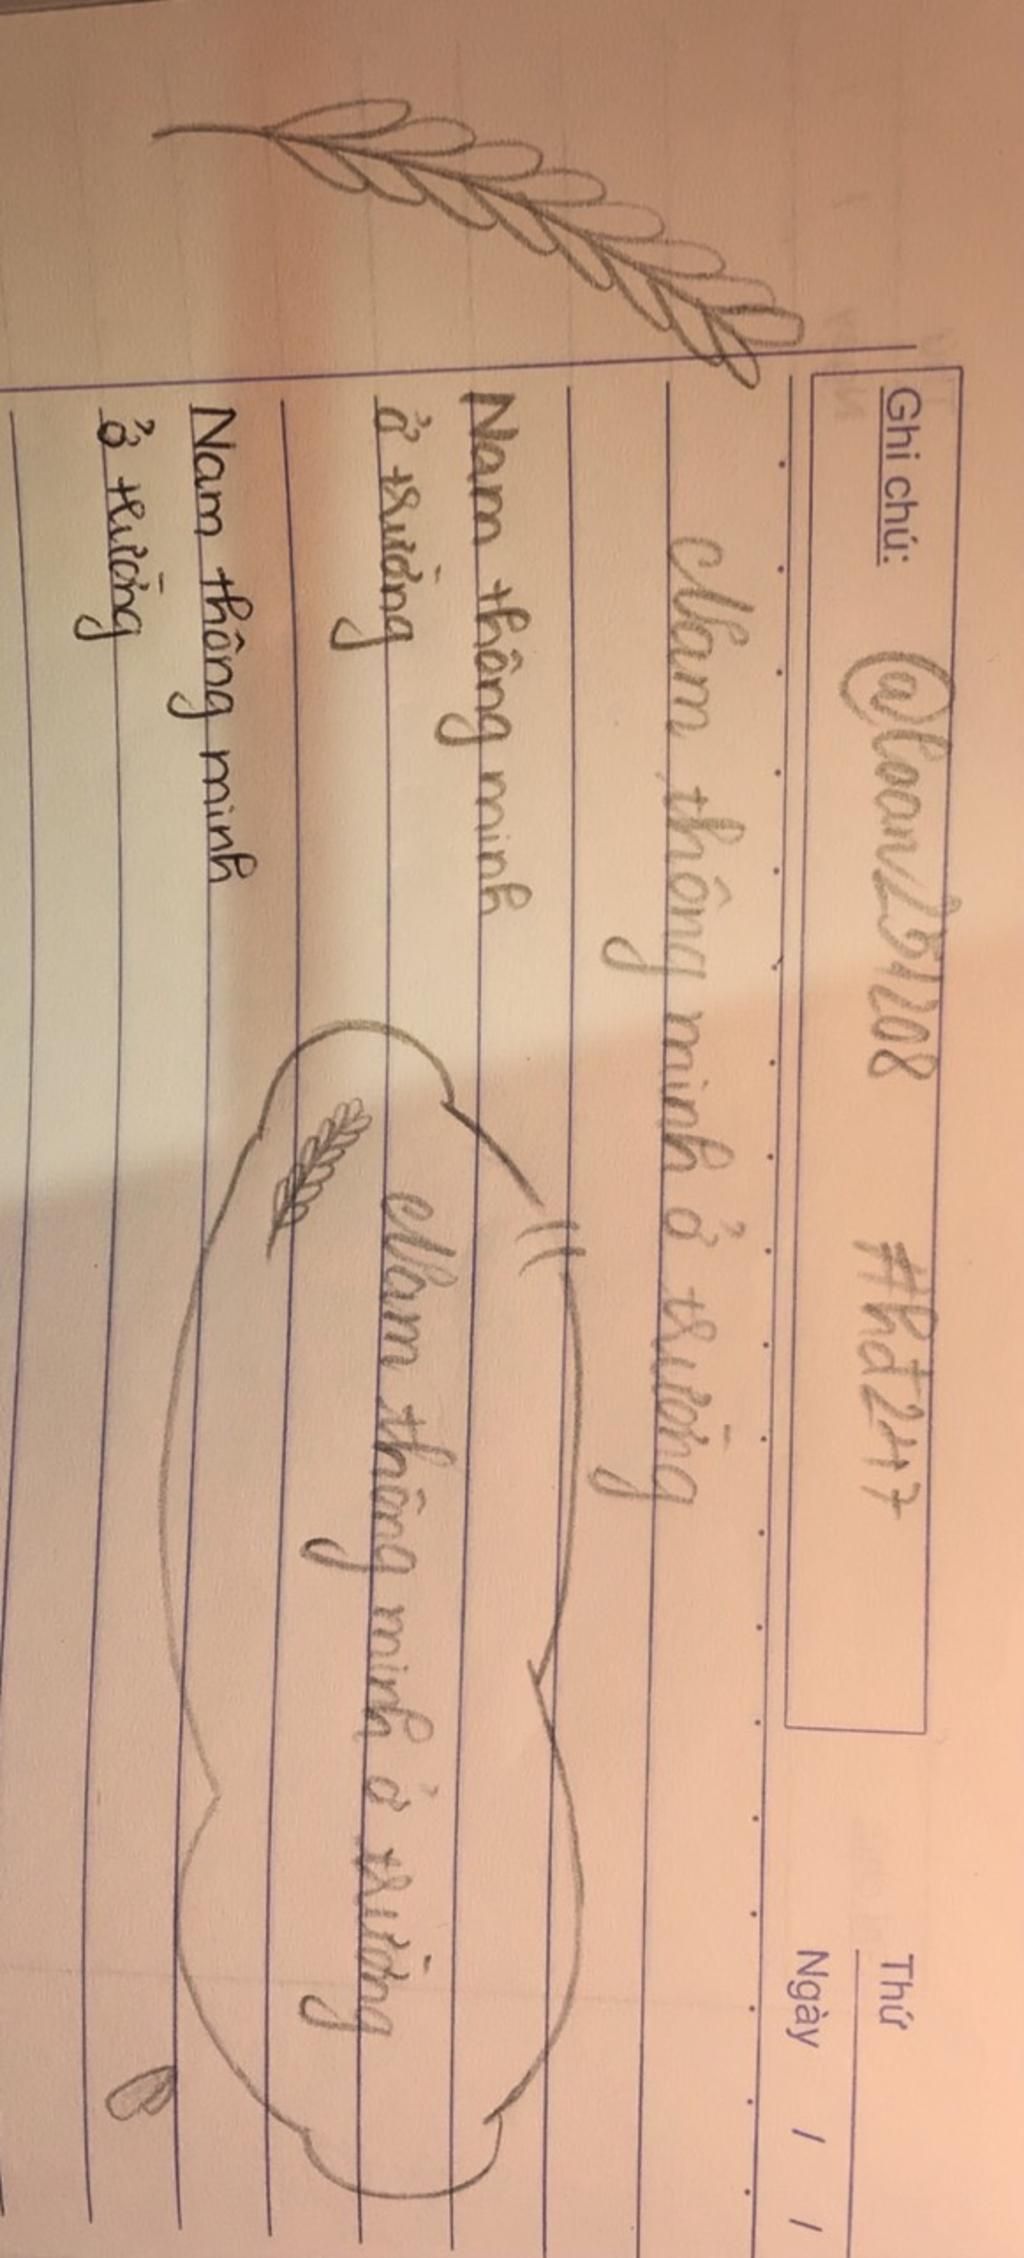 Ghi chú: @loan251208 #hđ247
Thứ
Ngày / /
Nam thông minh ở trường
Nam thông minh
ở trường
Nam thông minh ở trường
Nam thông minh
ở trường